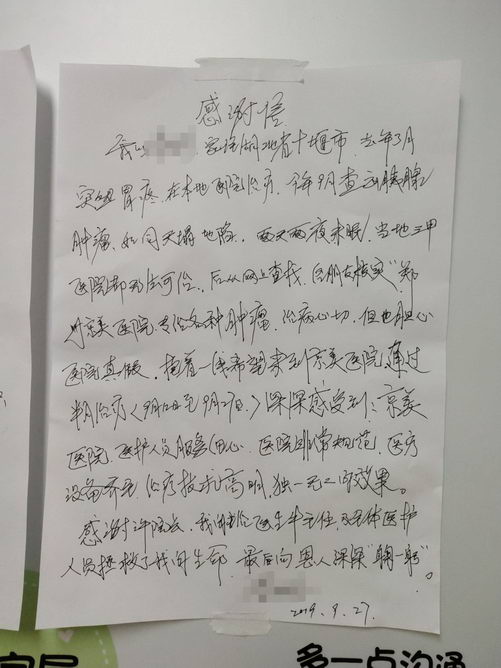 感谢信
家住湖北省十堰市，去年3月
突显胃疼，在本地医院治疗，今年9月查到胰腺
肿瘤，如同天塌地陷，两天两夜未眠！当地三甲
医院都无法可治，后从网上查找，给朋友核实"郑
州京美医院专治各种肿瘤，治病心切，但也担心
医院真假，抱着一线希望来到京美医院，通过
半月治疗<9月12日至9月27日>深深感受到：京美
医院，医护人员服务用心，医院非常规范，医疗
设备齐全，治疗技术高明，独一无二的效果。
感谢院长，我的主治医生牛主任，及全体医护
人员拯救了我的生命，最后向恩人深深"鞠一躬"。
2019.9.27.
多一点沟通